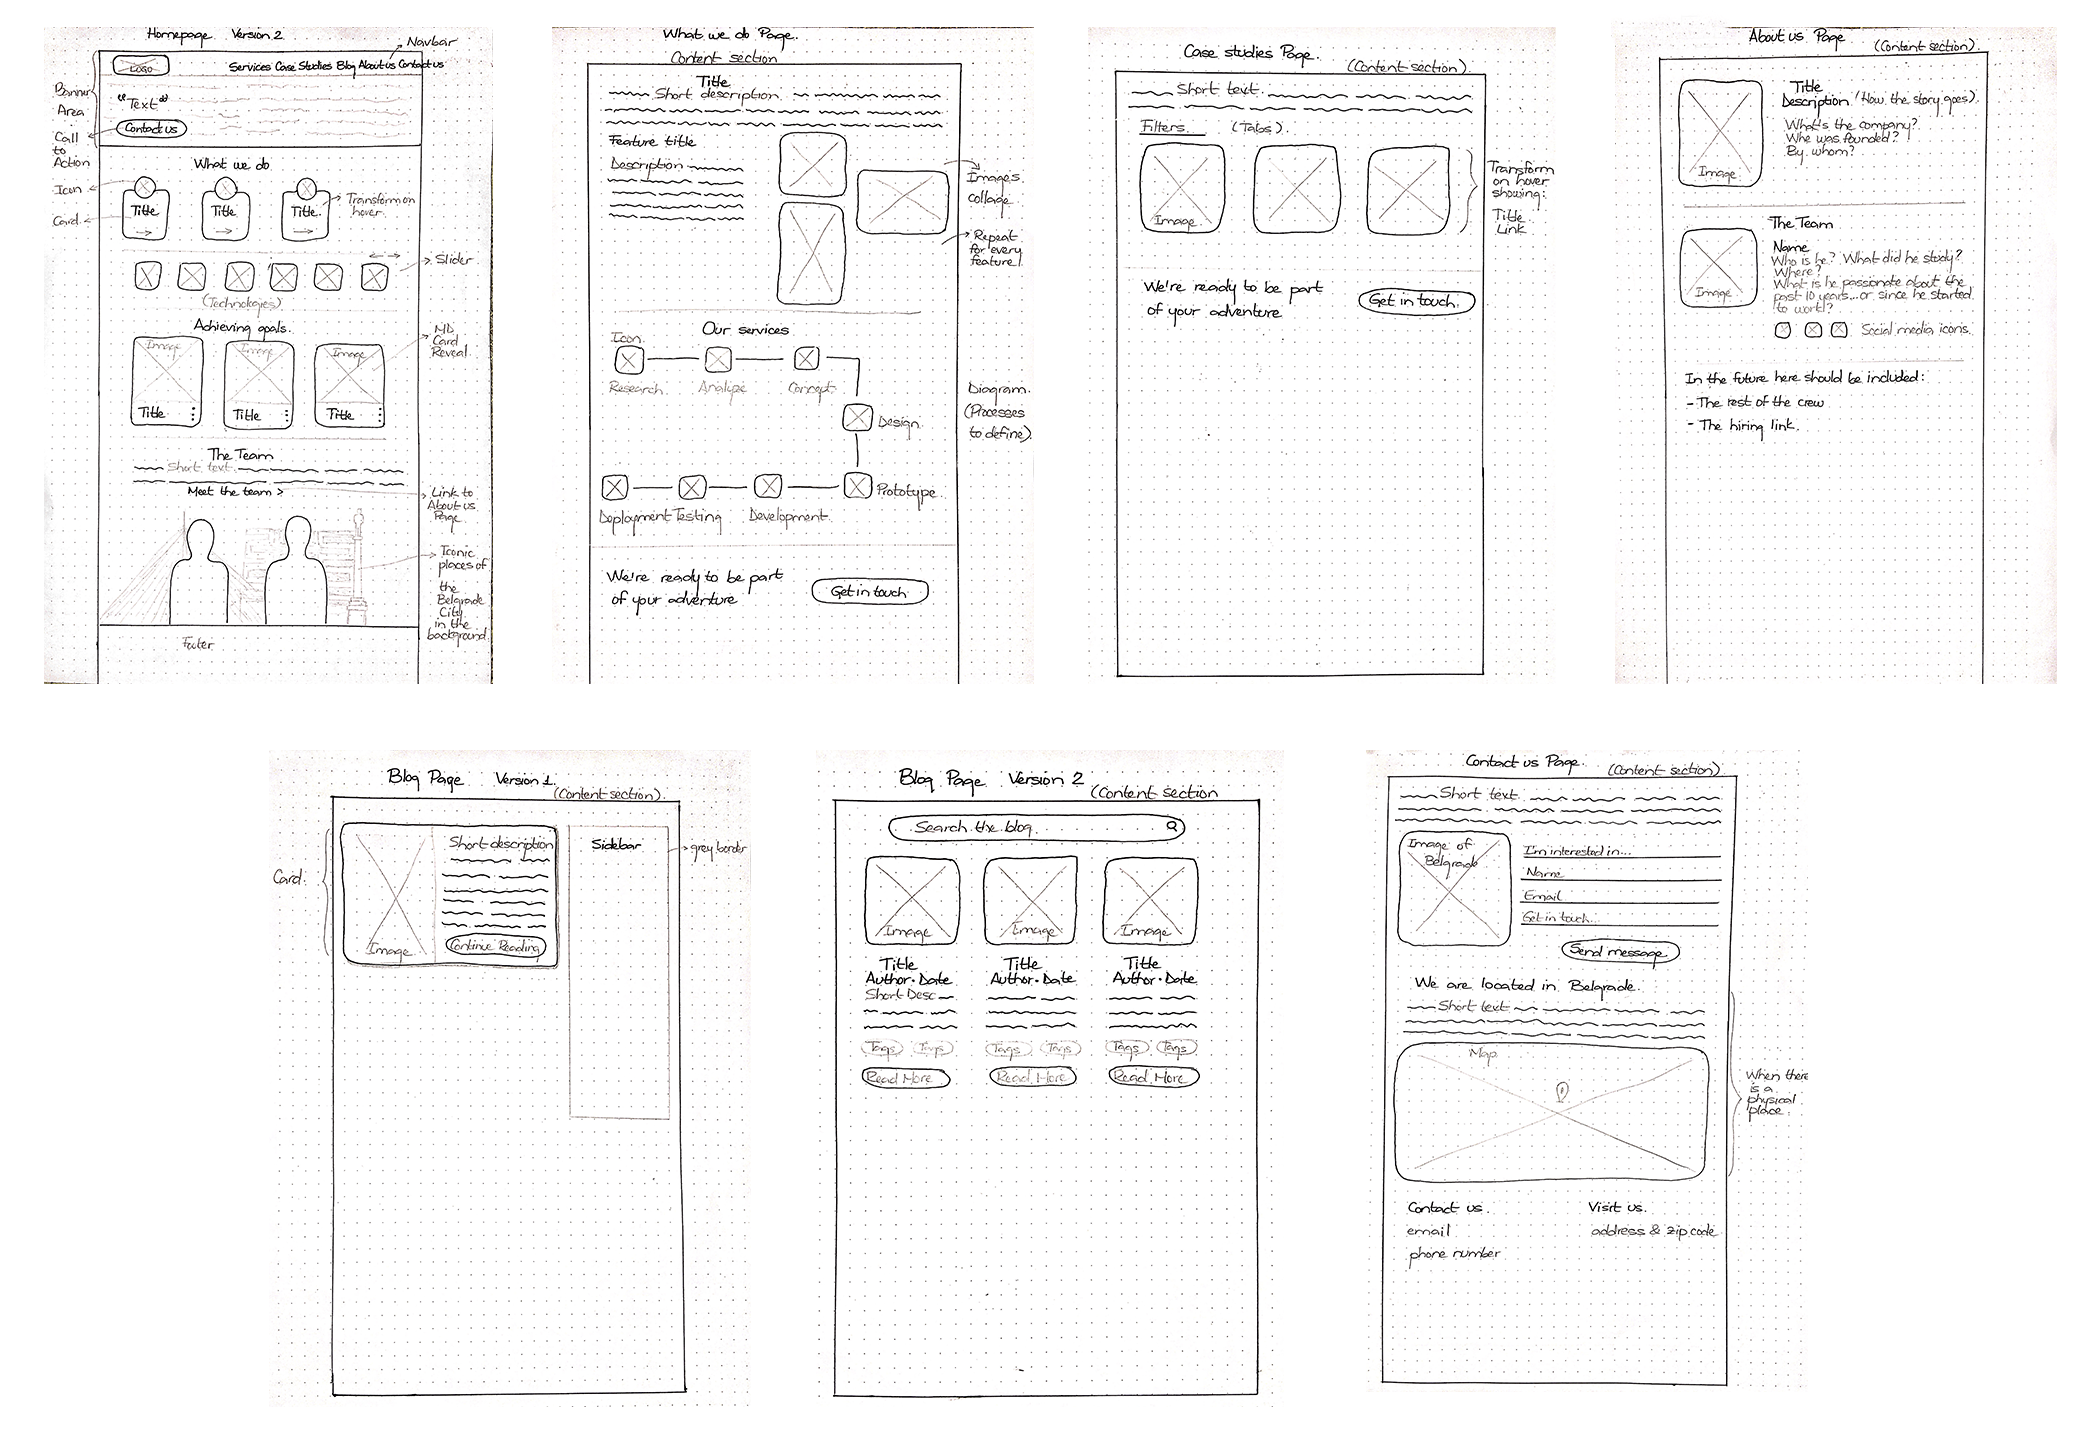 Homepage Version 2
Navbar
LOGO
Services Case Studies Blog About us Contact us
Banner
Area
"Text"
Contact us
Call
to
Action
What we do
Icon
Card
Title
Title
Title.
Transform on
hover
Slider
(Technologies)
Achieving goals.
Image
Image
Image
MD
Card
Reveal
Title
Title
Title
The Team
Short text
Meet the team >
Link to
About us
Page
Iconic
places of
the
Belgrade
City
in the
background
Footer
What we do Page.
Content section
Title
Short description
Feature title
Description
Images
collage
Repeat
for every
feature!
Our services
Icon
Research
Analyze
Concept
Design
Diagram.
(Processes
to define)
Prototype
Deployment Testing
Development
We're ready to be part
of your adventure
Get in touch
Case studies Page.
(Content section)
Short text
Filters
(Tabs).
Image
Transform
on hover
showing:
Title
Link
We're ready to be part
of your adventure
Get in touch
About us Page
(Content section)
Image
Title
Description (How the story goes)
What's the company?
Whe was founded?
By whom?
The Team
Image
Name
Who is he? What did he study?
Where?
What is he passionate about the
past 10 years...or since he started
to work?
Social media icons.
In the future here should be included:
- The rest of the crew
- The hiring link.
Blog Page Version 1.
(Content section).
Card
Image
Short description
Continue Reading
Sidebar
grey border
Blog Page Version 2
(Content section
Search the blog
Image
Image
Image
Title
Title
Title
Author • Date
Author • Date
Author • Date
Short Desc
Tags Tags
Tags Tags
Tags Tags
Read More
Read More
Read More
Contact us Page.
(Content section)
Short text
Image of
Belgrade
I'm interested in...
Name
Email
Get in touch...
Send message
We are located in Belgrade.
Short text
Map
When there
is a
physical
place
Contact us.
email
phone number
Visit us.
address & zip code